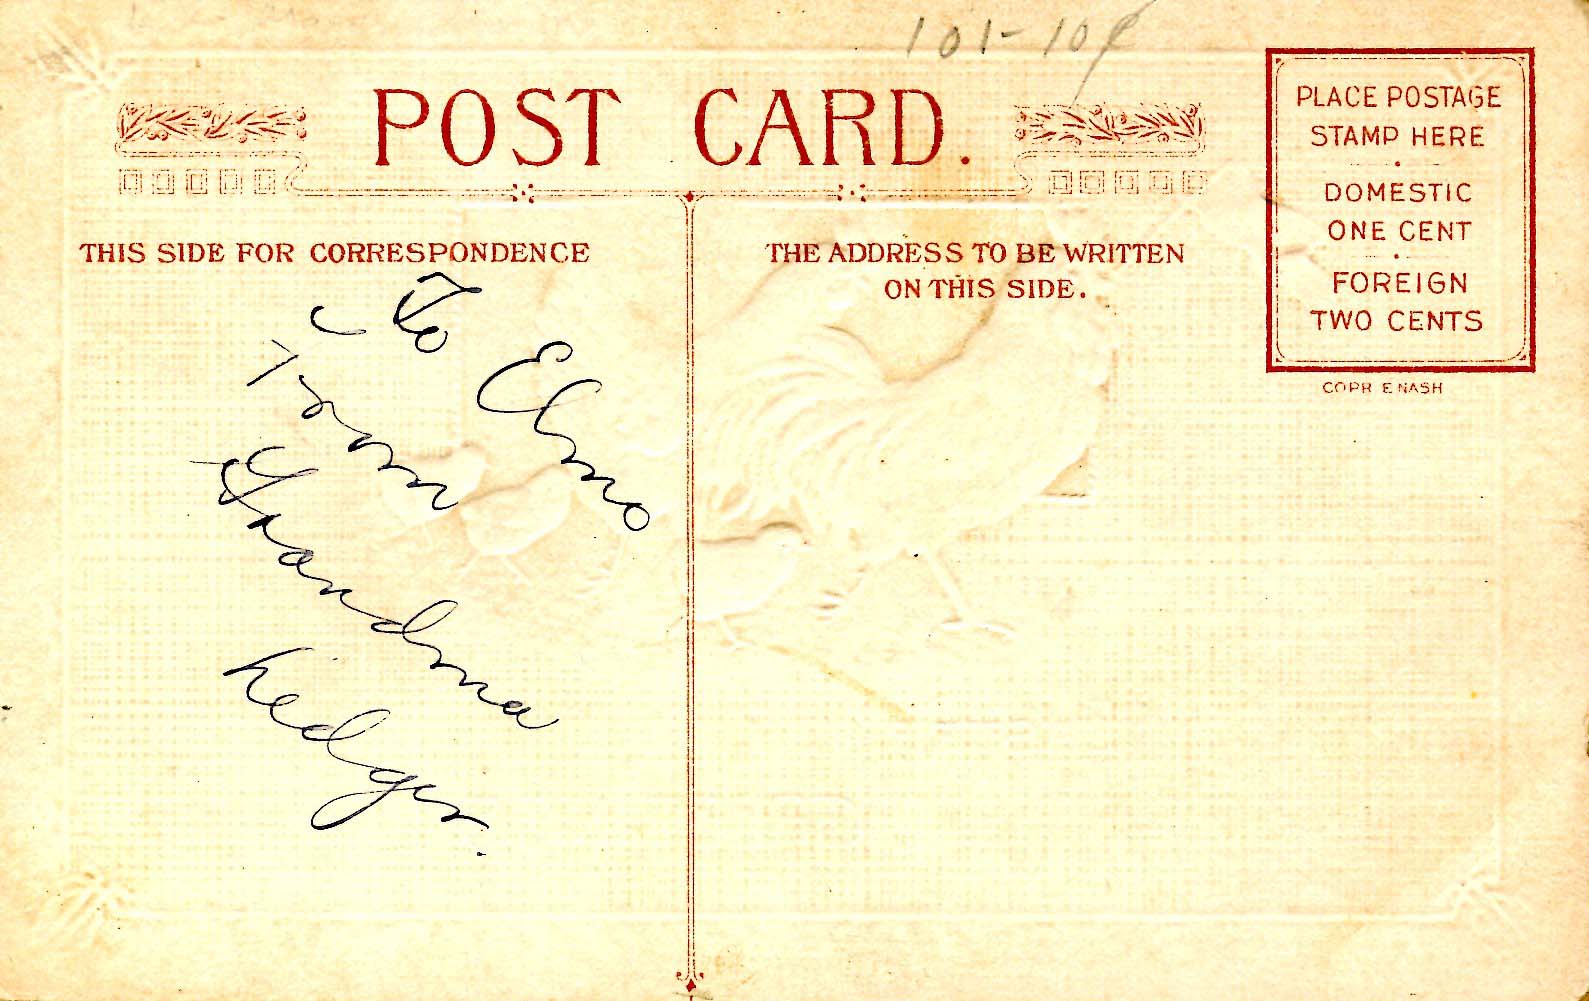 101-10¢
POST CARD.
PLACE POSTAGE
STAMP HERE
DOMESTIC
ONE CENT
FOREIGN
TWO CENTS
COPR E NASH
THIS SIDE FOR CORRESPONDENCE
THE ADDRESS TO BE WRITTEN
ON THIS SIDE.
To Elmo
From
Grandma
Ledger.